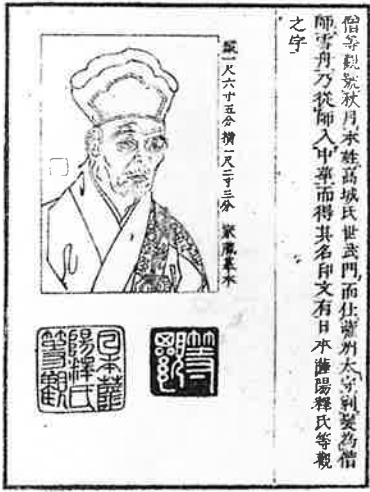 僧等觀號秋月本姓高城氏世武門而仕薩州太守剃髮為僧
師雪舟乃從師入中華而得其名印文有日本薩陽釋氏等觀
之字
竪一尺六寸五分横一尺二寸三分 家藏摹本
等觀
日本薩
陽釋氏
等觀